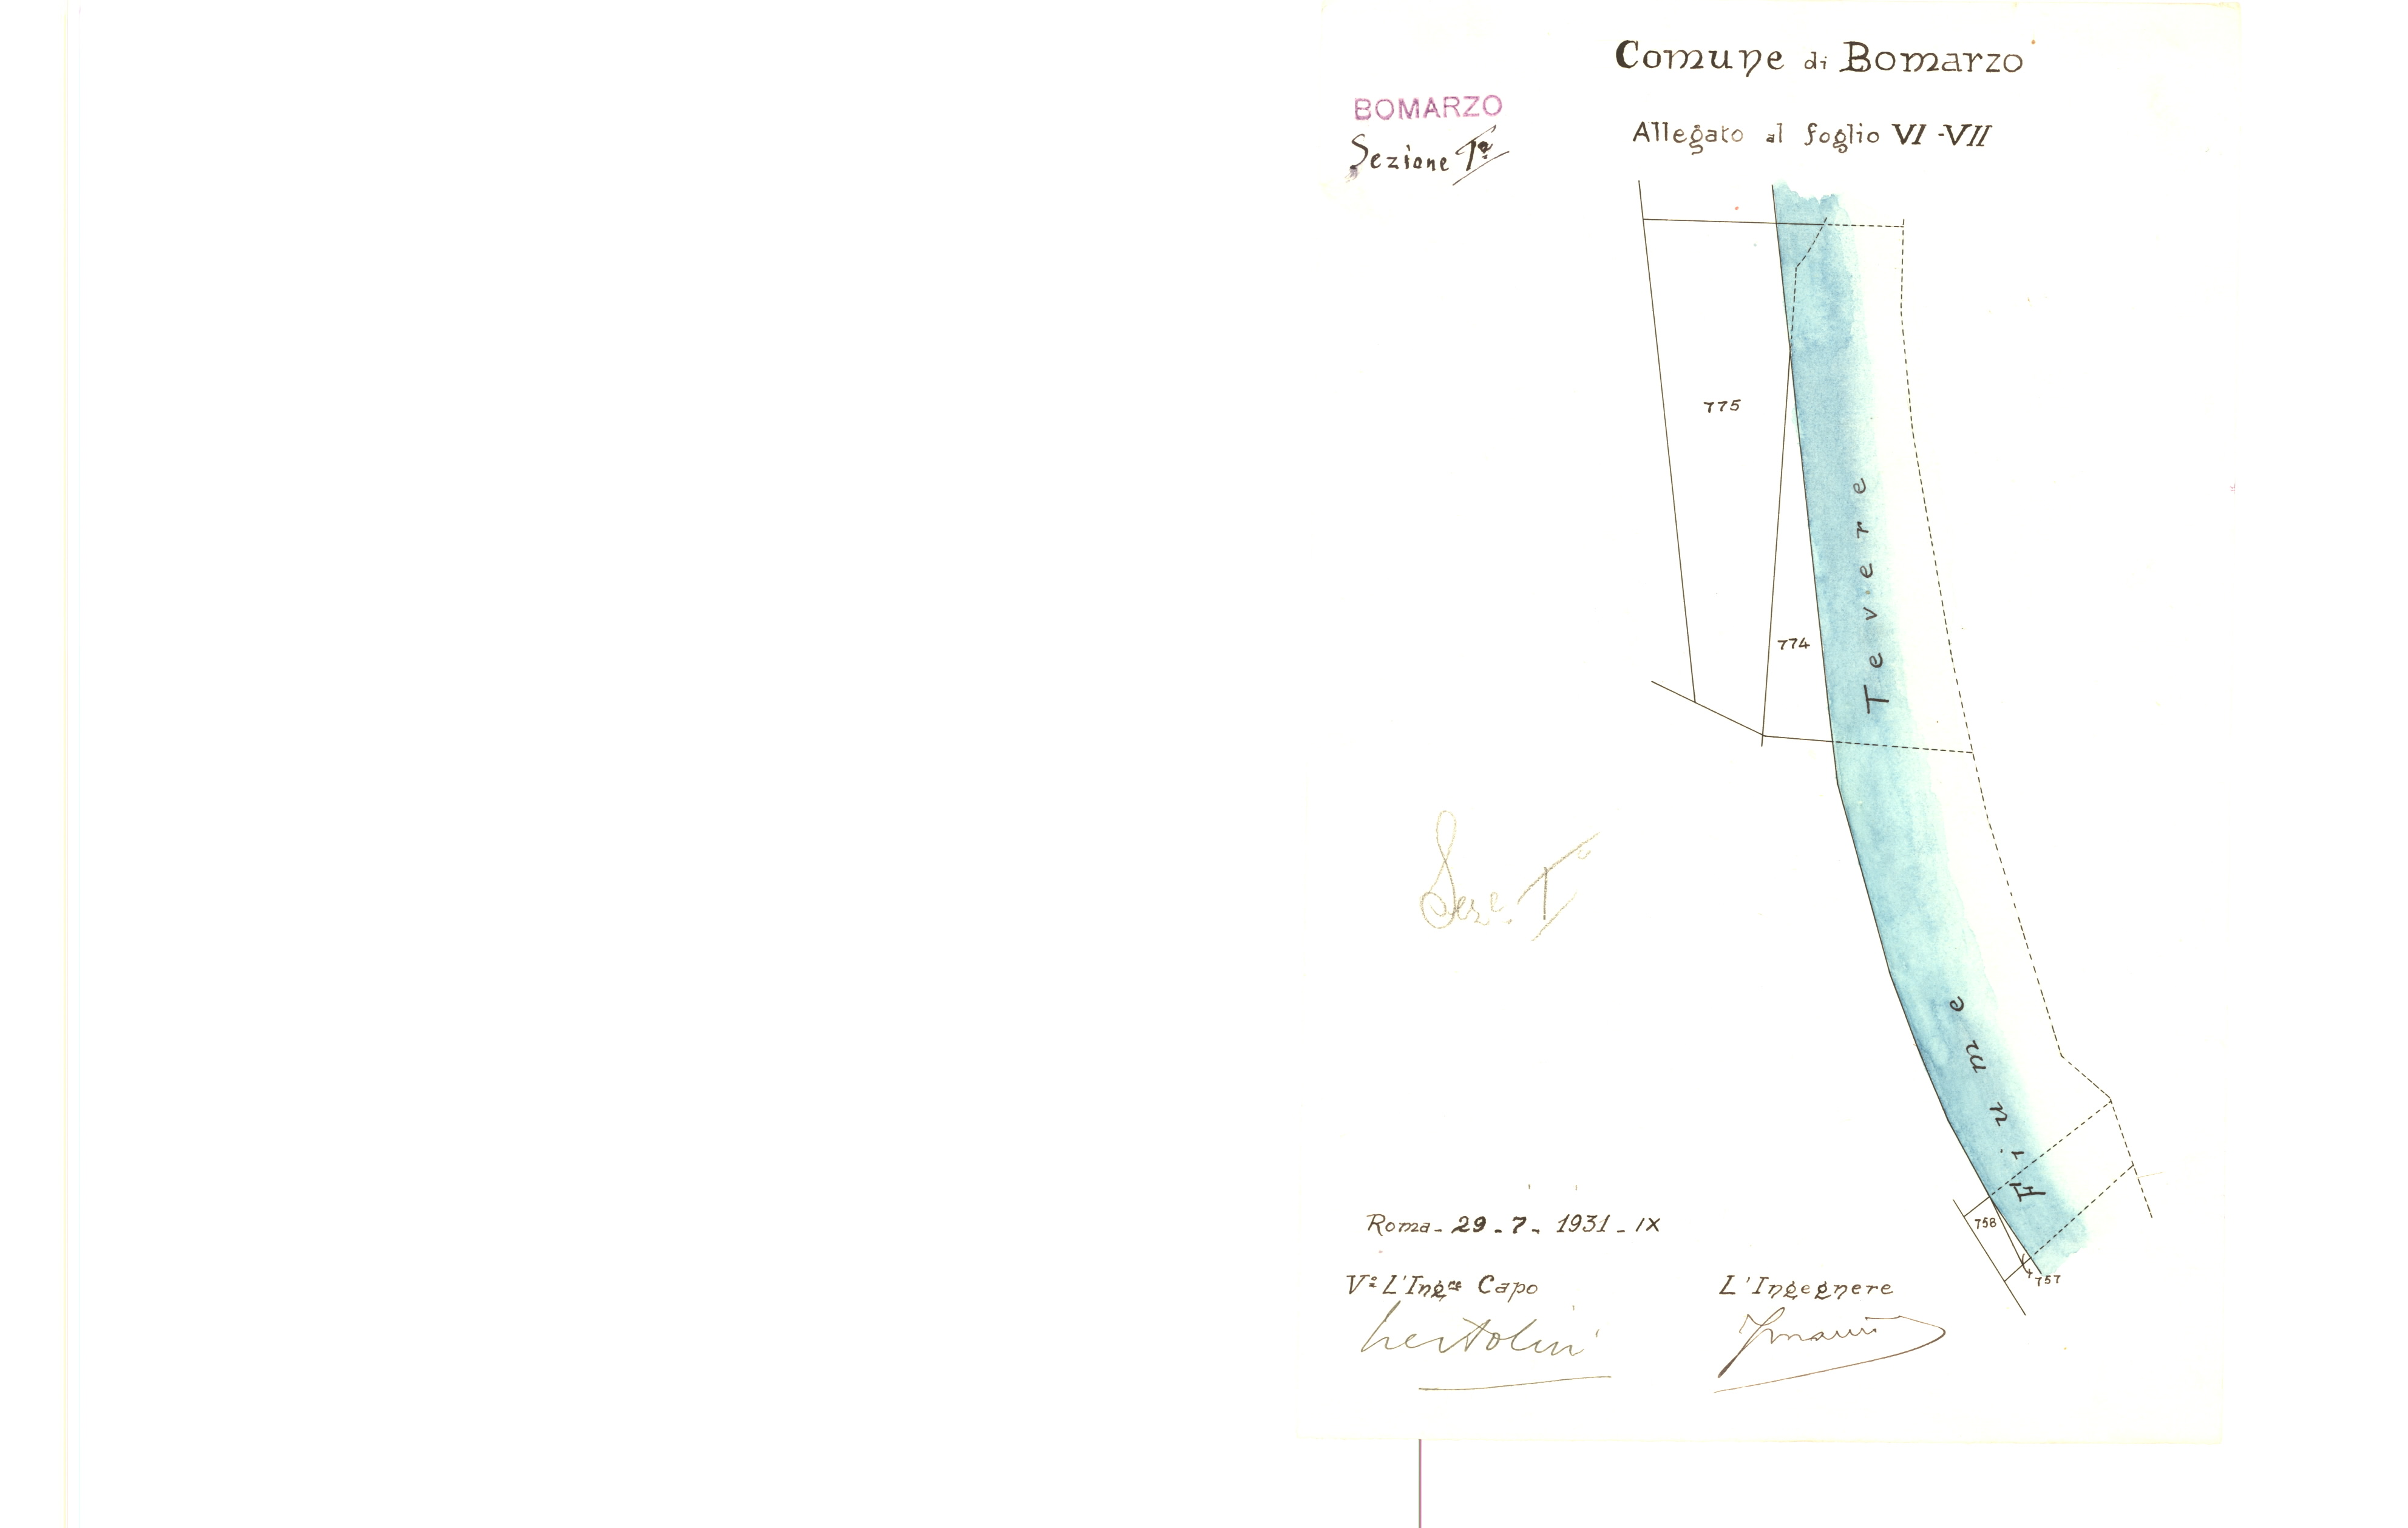 Comune di Bomarzo
BOMARZO
Allegato al foglio VI-VII
Sezione Iª
775
774
Fiume Tevere
Sezᵉ. I
758
757
Roma - 29 - 7 - 1931 - IX
Vº L'Ingʳᵉ Capo
L'Ingegnere
bertolini